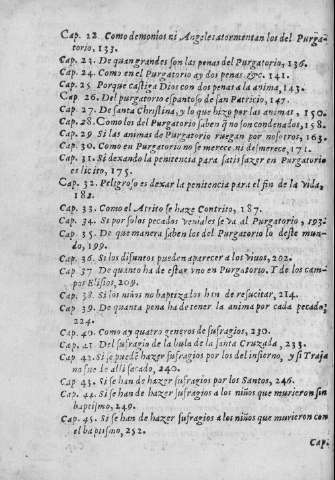 Cap. 22. Como demonios ni Angeles atormentan los del Purga-
torio, 133.
Cap. 23. De quan grandes son las penas del Purgatorio, 136.
Cap. 24. Como en el Purgatorio ay dos penas &c. 141.
Cap. 25. Porque castiga Dios con dos penas a la anima, 143.
Cap. 26. Del purgatorio espantoso de san Patricio, 147.
Cap. 27. De santa Christina, y lo que hizo por las animas, 150.
Cap. 28. Como los del Purgatorio saben q̃ no son condenados, 158.
Cap. 29. Si las animas de Purgatorio ruegan por nosotros, 163.
Cap. 30. Como en Purgatorio no se merece ni desmerece, 171.
Cap. 31. Si dexando la penitencia para satisfazer en Purgatorio
es licito, 175.
Cap. 32. Peligroso es dexar la penitencia para el fin de la vida,
182.
Cap. 33. Como el Atrito se haze Contrito, 187.
Cap. 34. Si por solos pecados veniales se va al Purgatorio, 193.
Cap. 35. De que manera saben los del Purgatorio lo deste mun-
do, 199.
Cap. 36. Si los difuntos pueden aparecer a los viuos, 202.
Cap. 37. De quanto ha de estar vno en Purgatorio. Y de los cam-
pos Elisios, 209.
Cap. 38. Si los niños no baptizados han de resucitar, 214.
Cap. 39. De quanta pena ha de tener la anima por cada pecado,
224.
Cap. 40. Como ay quatro generos de sufragios, 230.
Cap. 41. Del sufragio de la bula de la santa Cruzada, 233.
Cap. 42. Si se puedẽ hazer sufragios por los del infierno, y si Traja
no fue de alli sacado, 240.
Cap. 43. Si se han de hazer sufragios por los Santos, 246.
Cap. 44. Si se han de hazer sufragios a los niños que murieron sin
baptismo, 249.
Cap. 45. Si se han de hazer sufragios a los niños que murieron con
el baptismo, 252.
Cap.